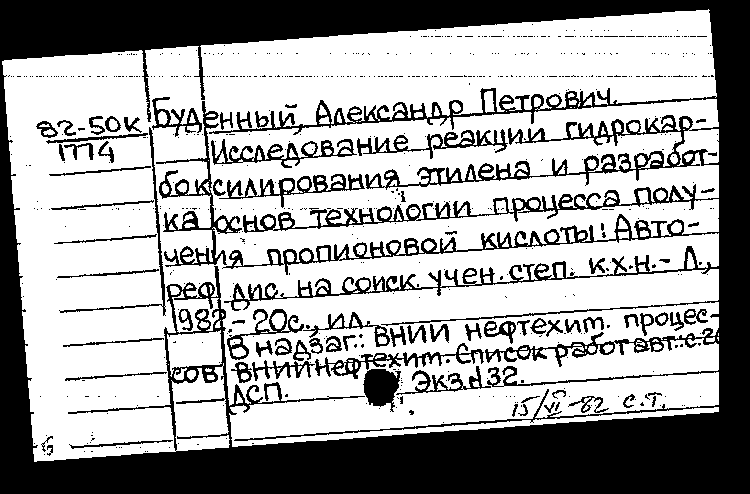 82-50К Буденный, Александр Петрович.
1774 Исследование реакции гидрокар-
боксилирования этилена и разработ-
ка основ технологии процесса полу-
чения пропионовой кислоты: Авто-
реф. дис. на соиск. учен. степ. к.х.н.- Л.,
1982.- 20с., ил.
В надзаг.: ВНИИ нефтехим. процес-
сов. ВНИИнефтехим. Список работ авт.: с.20
ДСП. Экз.№32.
15/VI-82 С.Т.